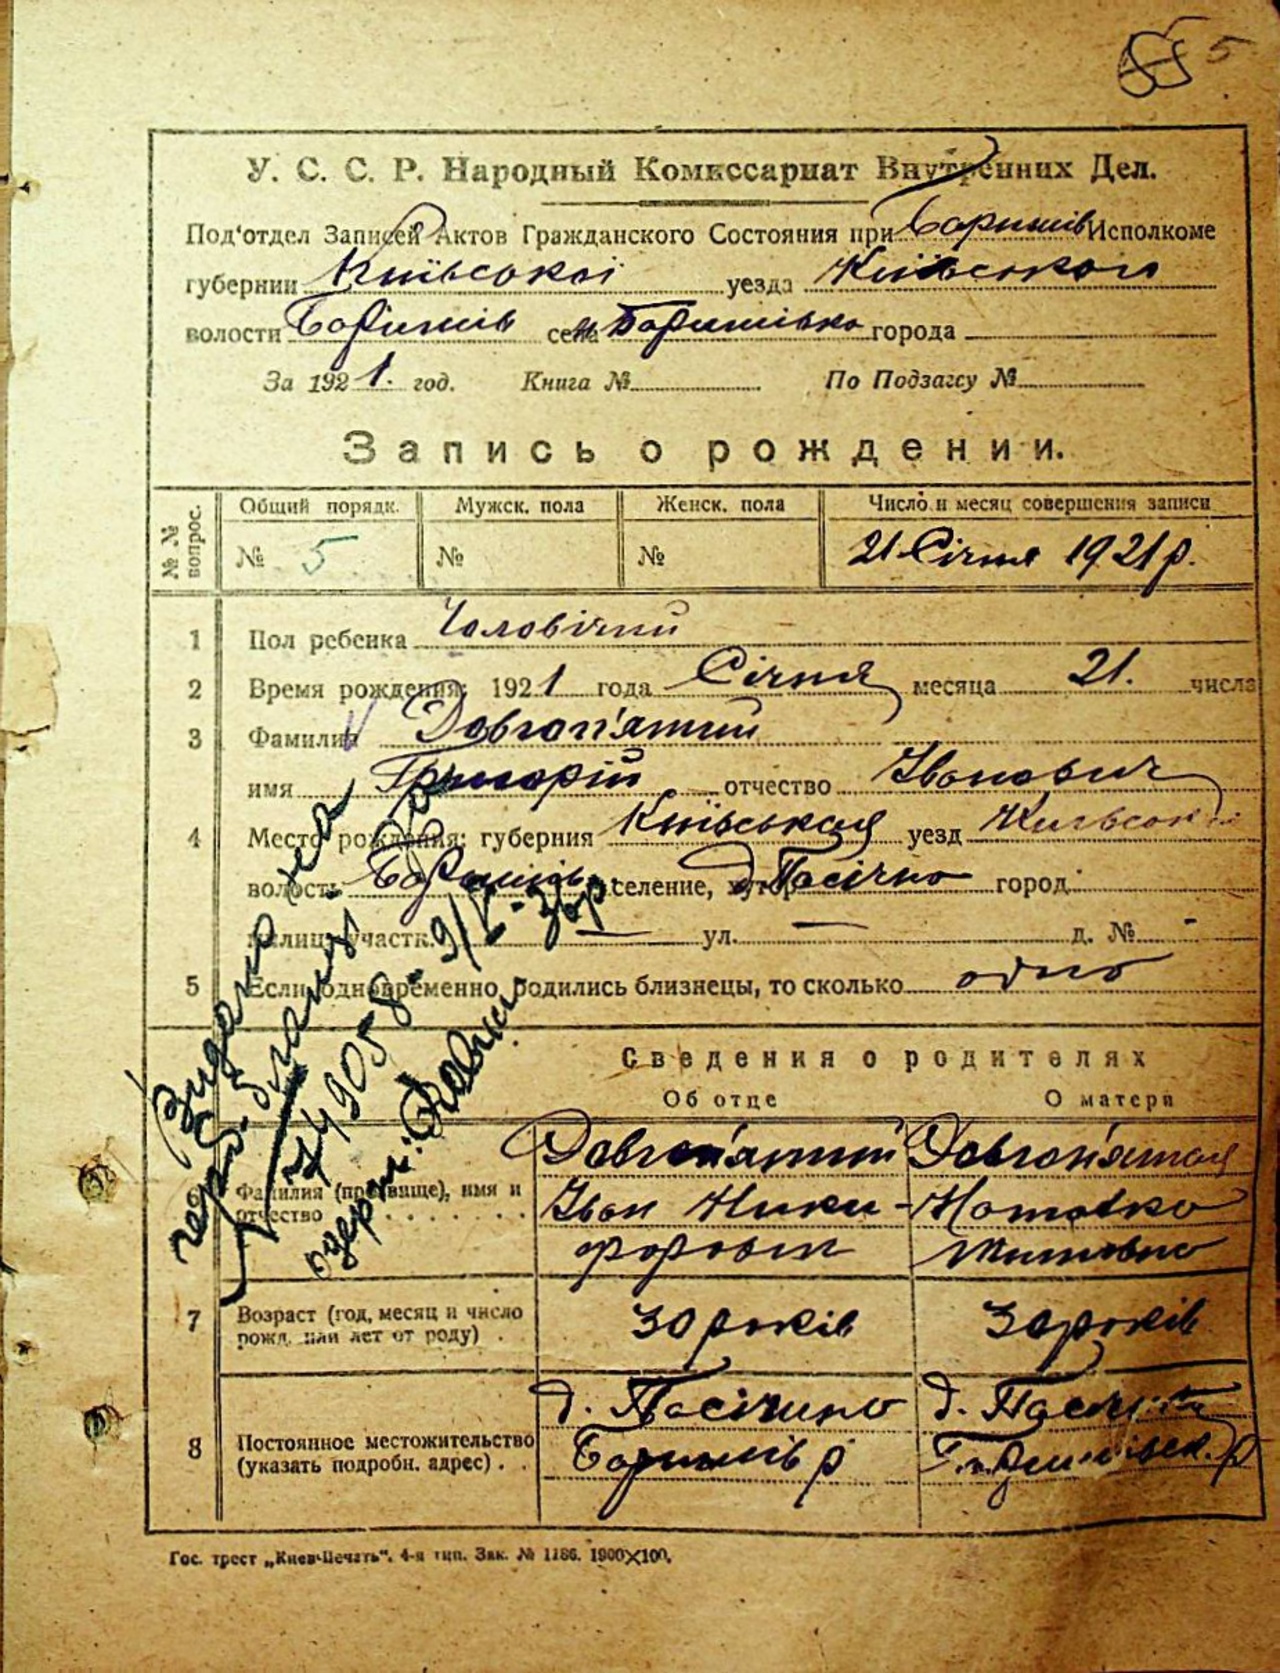 5
У. С. С. Р. Народный Комиссариат Внутренних Дел.
Под'отдел Записей Актов Гражданского Состояния при Баришів Исполкоме
губернии Київської уезда Київського
волости Баришів села м Баришівка города
За 1921. год. Книга № По Подзагсу №
Запись о рождении.
№ № вопрос. Общий порядк. Мужск. пола Женск. пола Число и месяц совершения записи
№ 5 № № 21 Січня 1921 р.
1 Пол ребенка Чоловічий
2 Время рождения: 1921 года Січня месяца 21. числа
3 Фамилия Довгоп'ятий
имя Григорій отчество Іванович
4 Место рождения: губерния Київськая уезд Київськ
волость Баришів селение, хутор д Пасічна город
милиц. участк. — ул. — д. № -
5 Если одновременно родились близнецы, то сколько одно
Сведения о родителях
Об отце О матери
6 Фамилия (прозвище), имя и отчество
Довгоп'ятий Іван Ники-форович
Довгоп'ятая Наталка Титовна
7 Возраст (год, месяц и число рожд. или лет от роду) . 30 років 30 років
8 Постоянное местожительство (указать подробн. адрес) . .
д. Пасічна Баришів р
д. Пасічна Баришівськ. р
Видано
Гос. трест „Киев-Печать". 4-я тип. Зак. № 1186. 1900×100.